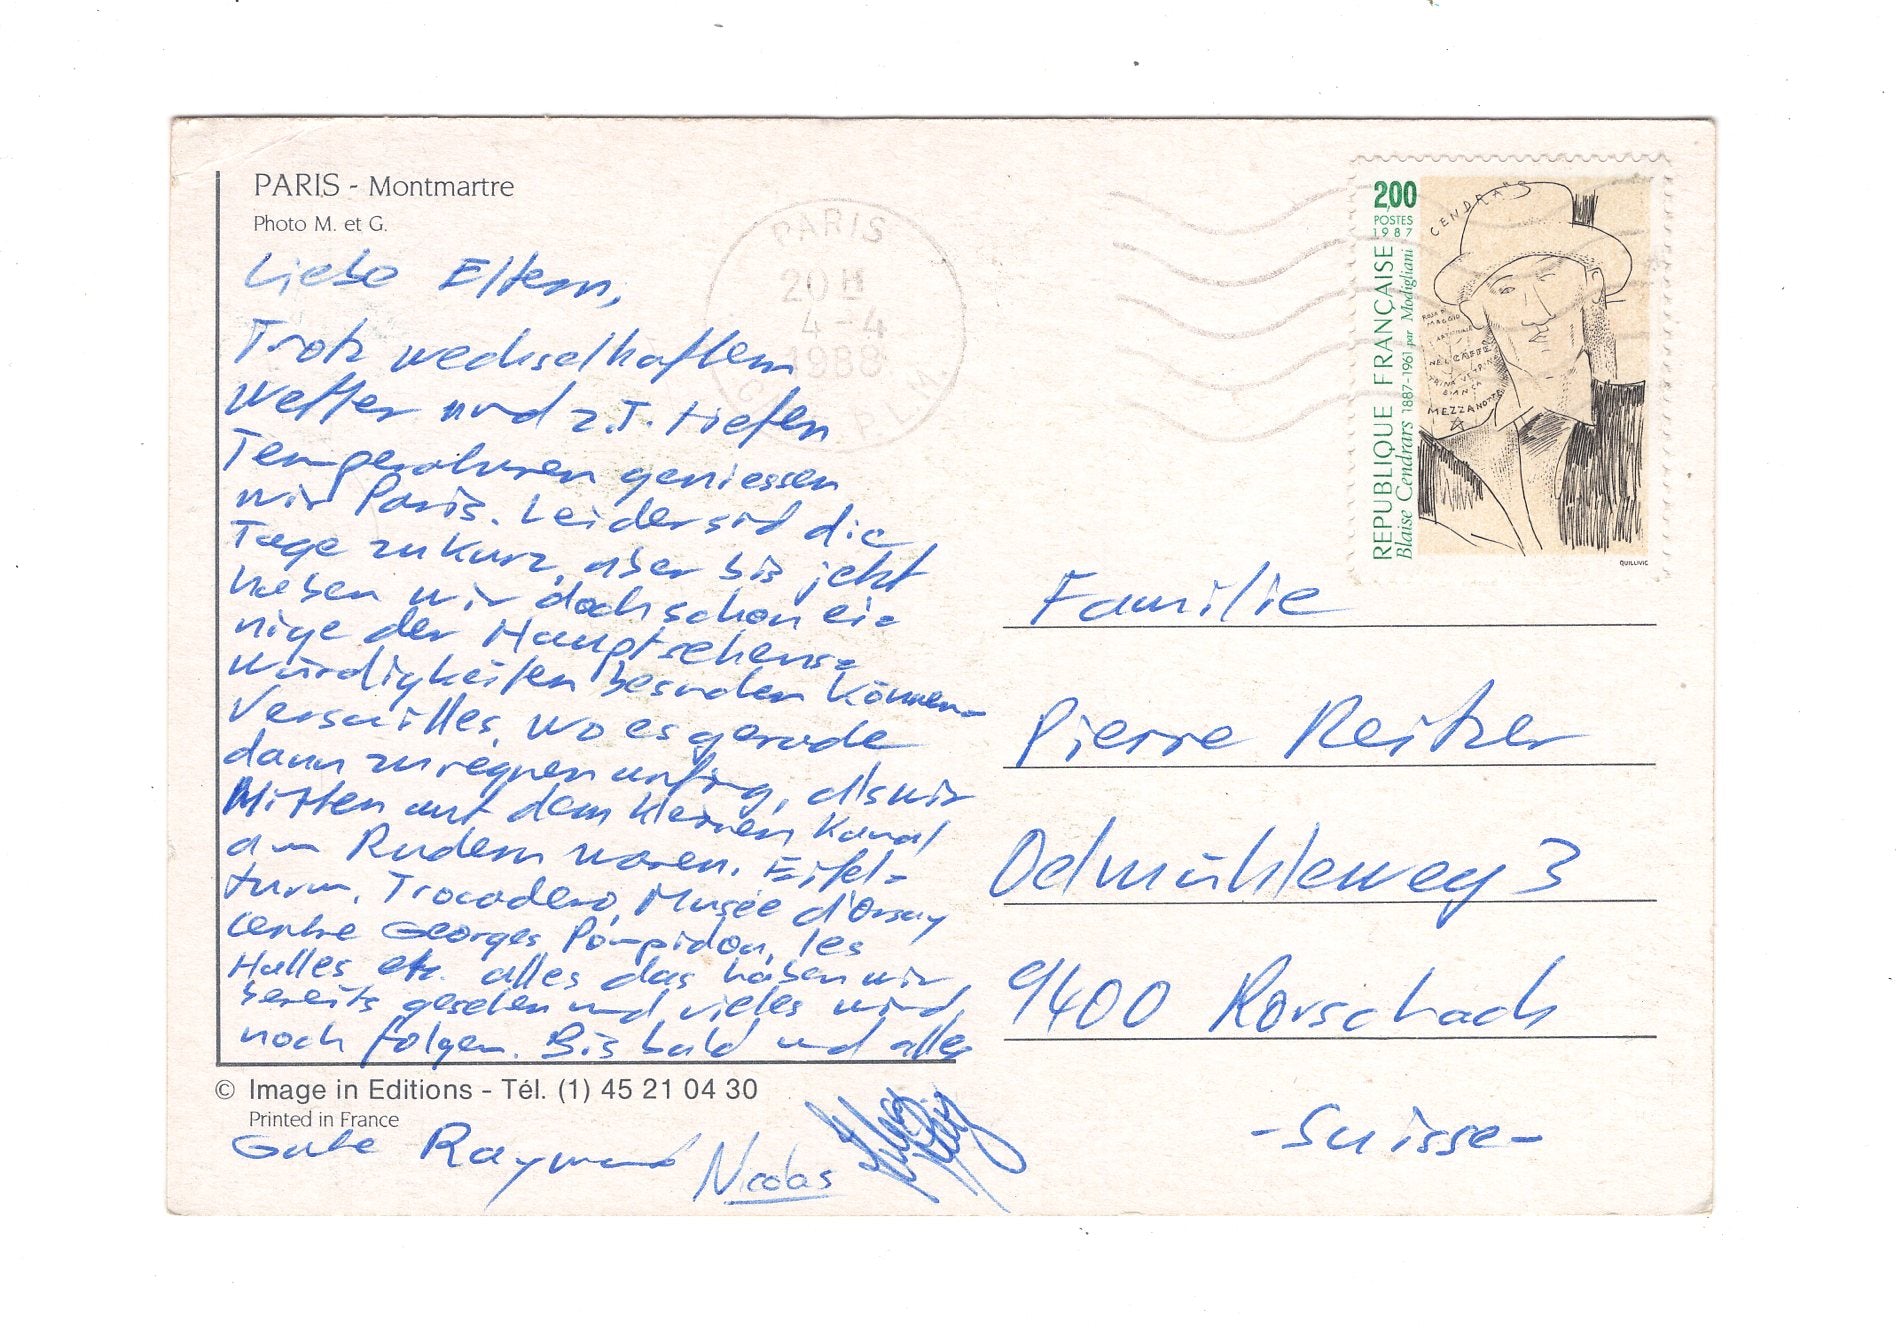 PARIS - Montmartre
Photo M. et G.
Liebe Eltern,
Trotz wechselhaftem
Wetter und z.T. tiefen
Temperaturen geniessen
wir Paris. Leider sind die
Tage zu kurz, aber bis jetzt
haben wir doch schon ei=
nige der Hauptsehens=
würdigkeiten besuchen können.
Versailles, wo es gerade
dann zu regnen anfing, als wir
Mitten auf dem kleinen Kanal
am Rudern waren. Eifel=
turm, Trocadero, Musée d'Orsay
Centre Georges Pompidou, les
Halles etc. alles das haben wir
bereits gesehen und vieles wird
noch folgen. Bis bald und alles
© Image in Editions - Tél. (1) 45 21 04 30
Printed in France
Gute Raymond Nicolas
PARIS
20 H
4-4
1988
2,00
POSTES
1987
REPUBLIQUE FRANÇAISE
Blaise Cendrars 1887-1961 par Modigliani
CENDRARS
NEL CAFFE
MEZZANOTTE
QUILLIVIC
Familie
Pierre Reitzer
Oelmühleweg 3
9400 Rorschach
-Suisse-